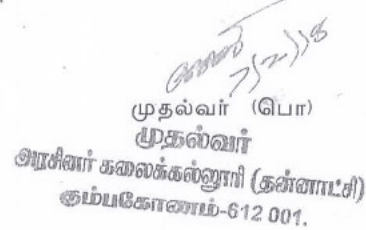 7/2/18
முதல்வர் (பொ)
முதல்வர்
அரசினர் கலைக்கல்லூரி (தன்னாட்சி)
கும்பகோணம்-612 001.